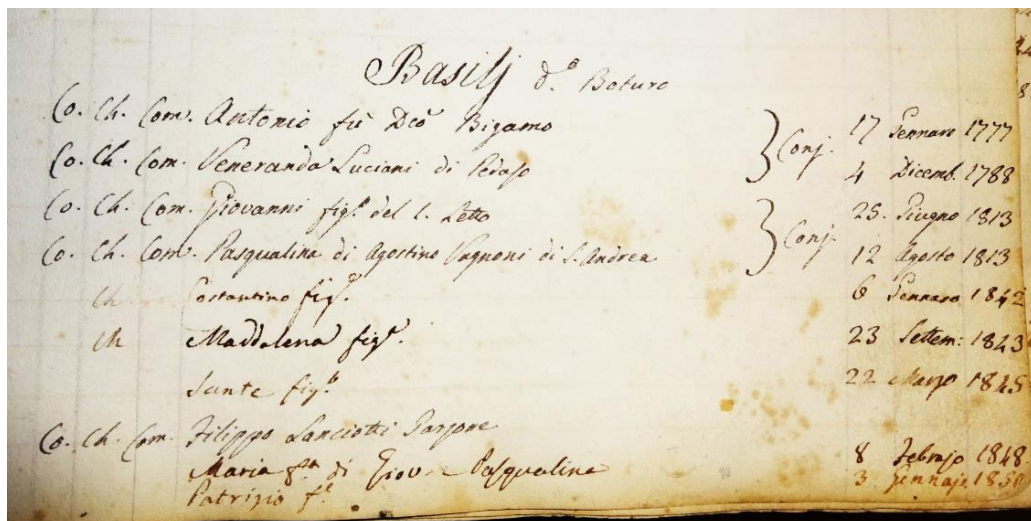 Basilj d.º Boturo
Co. Ch. Com. Antonio fù Dcõ Bigamo } Conj. 17 Gennaro 1777
Co. Ch. Com. Veneranda Luciani di Pedaso 4 Dicemb. 1788
Co. Ch. Com. Giovanni figº del 1. Letto } Conj. 25. Giugno 1813
Co. Ch. Com. Pasqualina di Agostino Vagnoni di S. Andrea 12 Agosto 1813
Ch Costantino figº. 6 Gennaro 1842
Ch Maddalena figª. 23 Settem: 1843
Sante figº. 22 Marzo 1845
Co. Ch. Com. Filippo Lanciotti Garzone
Maria fª di Giov. e Pasqualina 8 Febrajo 1848
Patrizio fº 3 Gennajo 1850